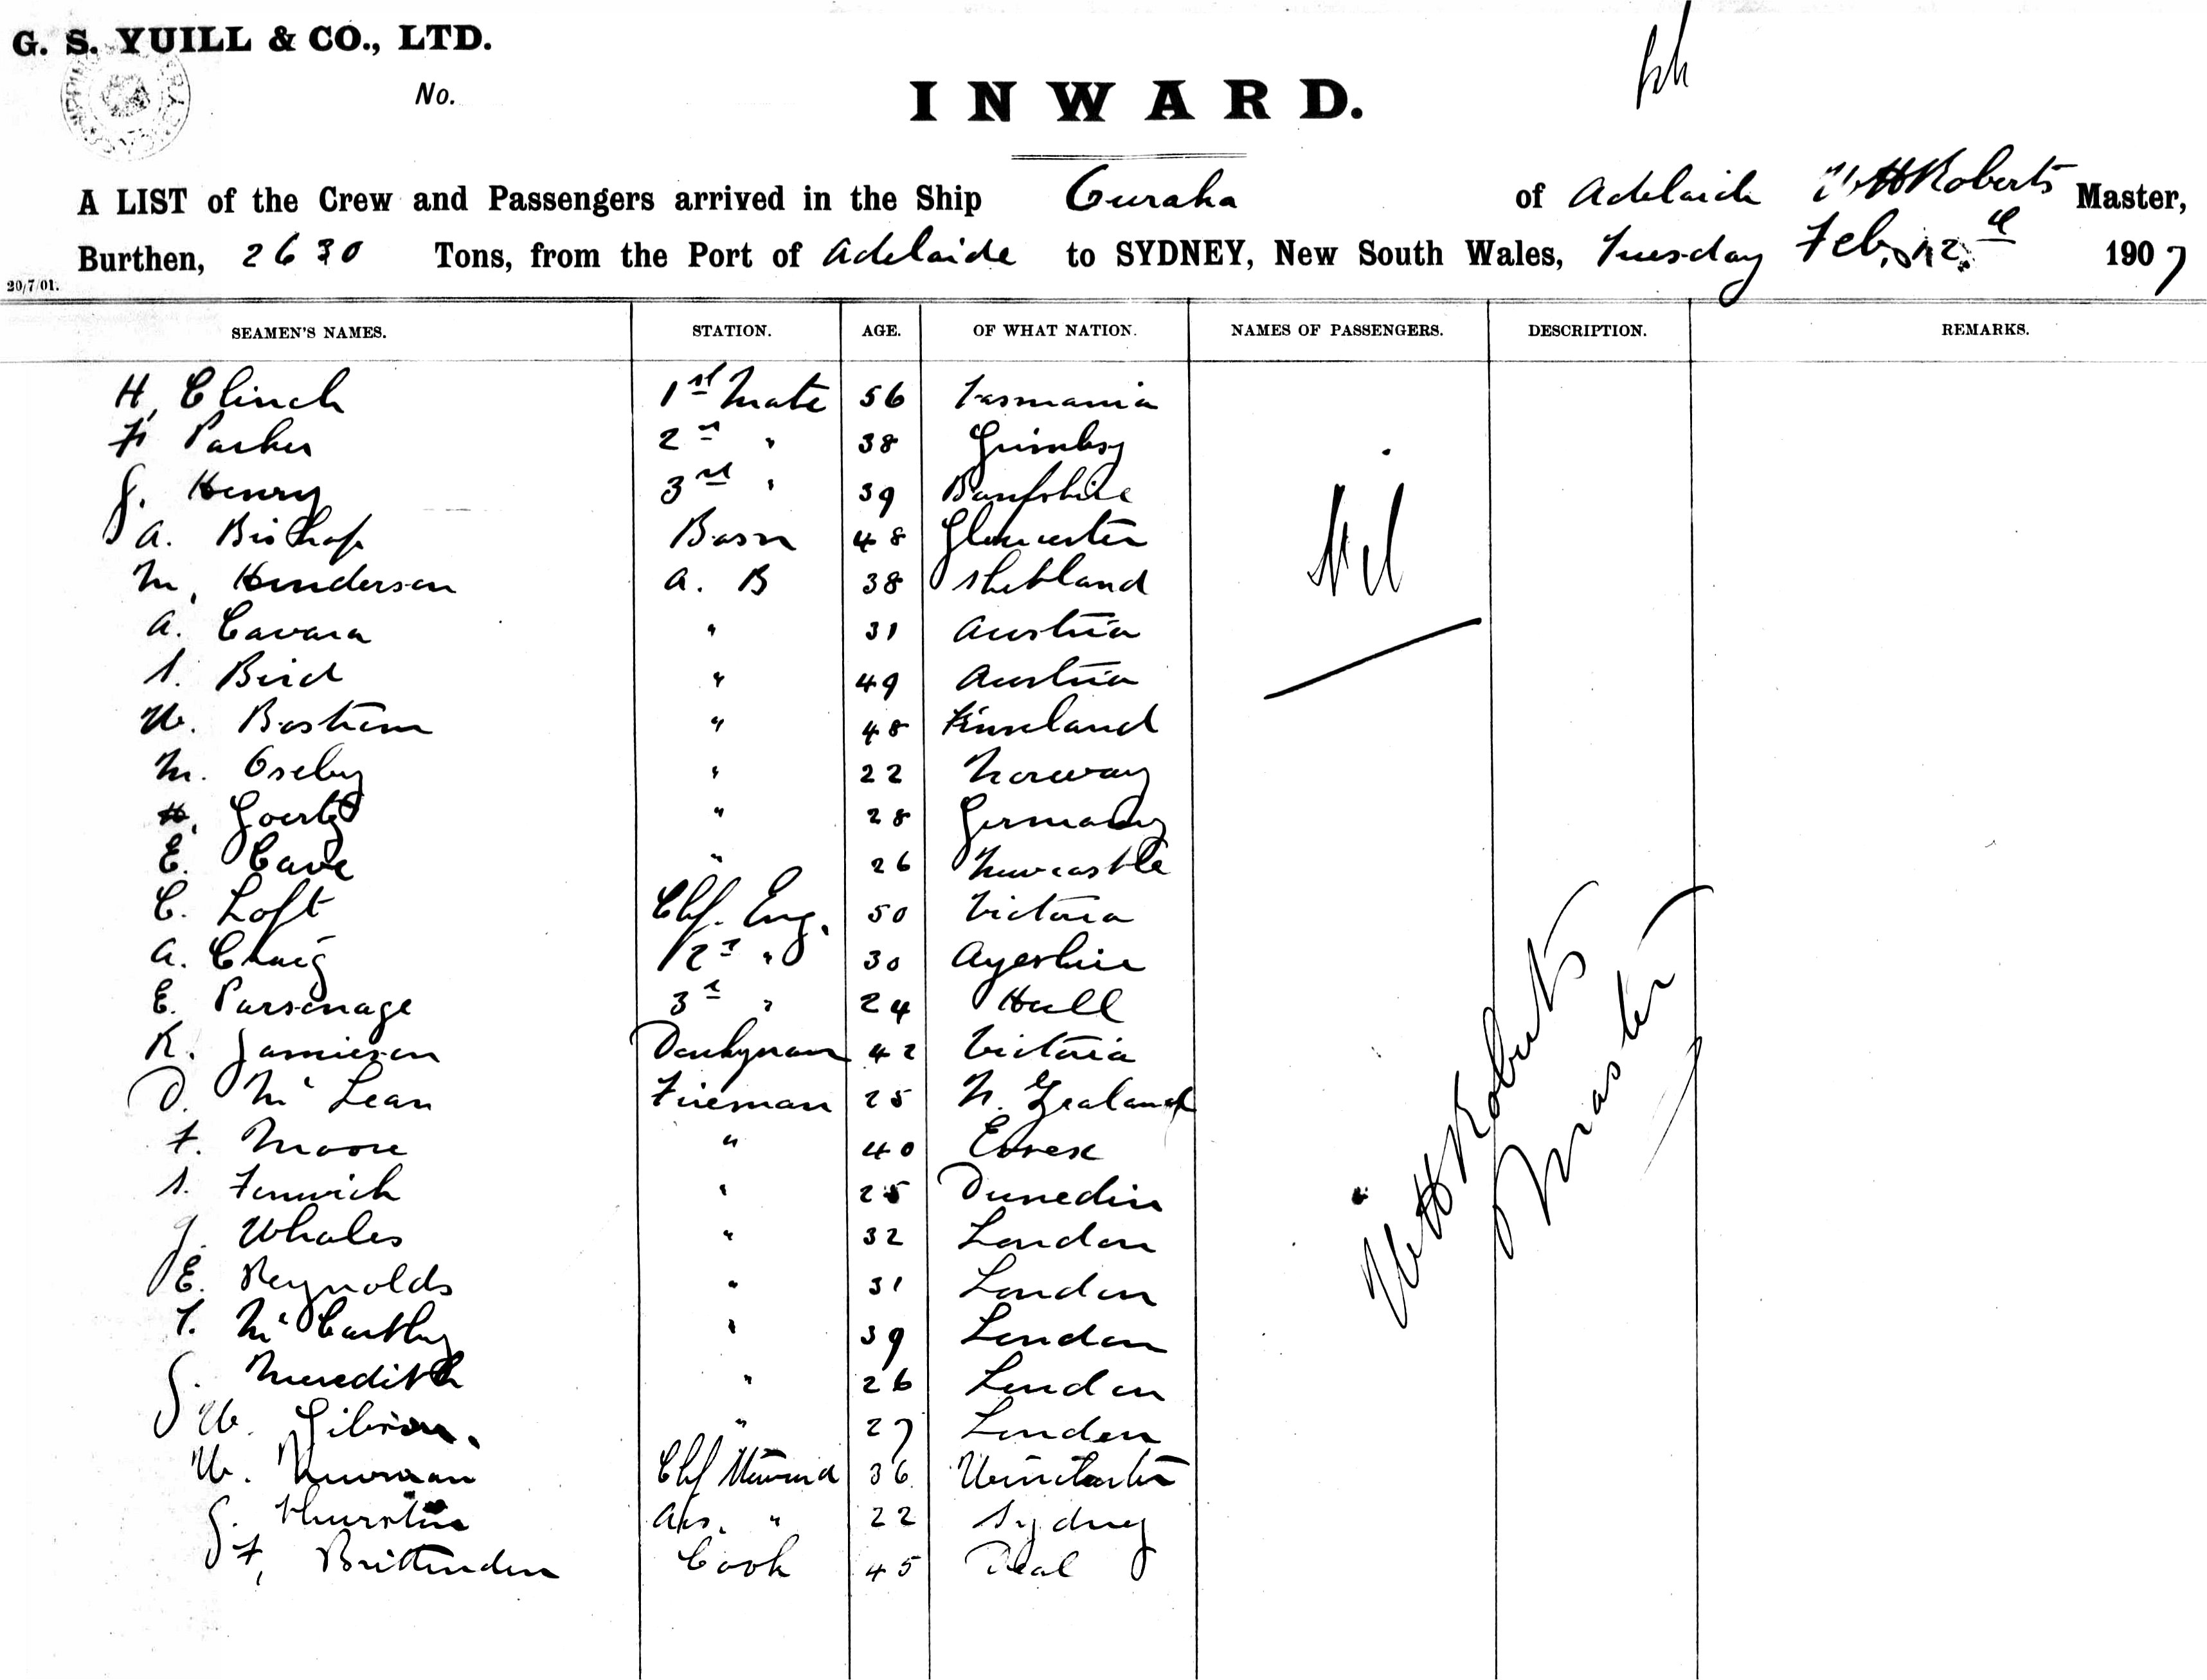 G. S. YUILL & CO., LTD.
No.
INWARD.
A LIST of the Crew and Passengers arrived in the Ship Curaka of Adelaide W H Roberts Master,
Burthen, 2630 Tons, from the Port of Adelaide to SYDNEY, New South Wales, Tuesday Feb. 12th 1907
20/7/01.
SEAMEN'S NAMES. STATION. AGE. OF WHAT NATION. NAMES OF PASSENGERS. DESCRIPTION. REMARKS.
H. Clinch 1st Mate 56 Tasmania
F. Parker 2nd " 38 Grimsby
J. Henry 3rd " 39 Banfshire
A. Bishop Bosn 48 Gloucester
Nil
M. Henderson A. B 38 Shetland
A. Cavara " 31 Austria
S. Bird " 49 Austria
W. Bostrom " 48 Finnland
M. Oseby " 22 Norway
H. Goertz " 28 Germany
E. Cave " 26 Newcastle
C. Loft Chf. Eng. 50 Victoria
A. Craig 2nd " 30 Ayrshire
E. Parsonage 3rd " 24 Hull
R. Jamieson Donkyman 42 Victoria
D. McLean Fireman 25 N. Zealand
F. Moore " 40 Essex
S. Fenwick " 25 Dunedin
J. Whales " 32 London
E. Reynolds " 31 London
T. McCarthy " 39 London
J. Meredith " 26 London
W. Gibson. " 27 London
W. Newman Chf Steward 36 Winchester
J. Thurston Ass. " 22 Sydney
F. Brittenden Cook 45 Deal
W H Roberts
Master